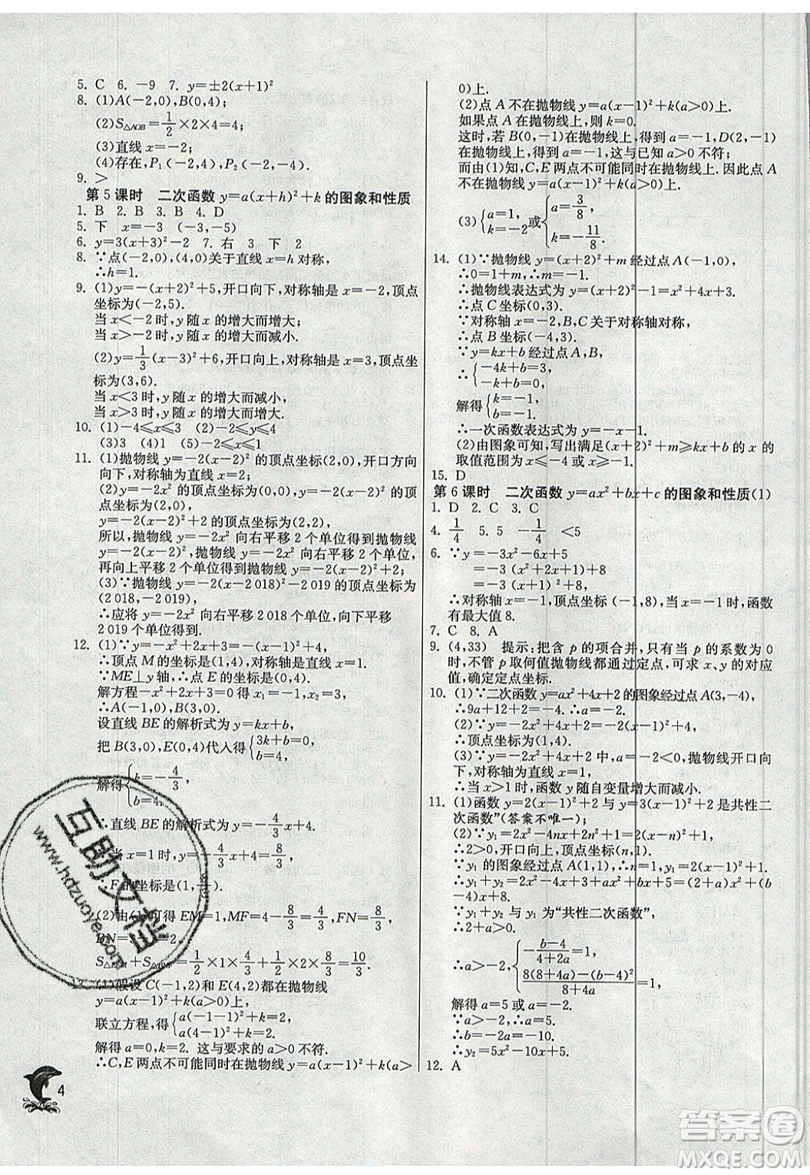 5. C 6. －9 7. y=±2(x+1)²
8. (1)A(－2,0),B(0,4);
(2)S△AOB=1/2×2×4=4;
(3)直线 x=－2;
(4)存在,P₁(－2,4),P₂(－2,－4).
9. >
第 5 课时 二次函数 y=a(x+h)²+k 的图象和性质
1. B 2. B 3. B 4. D
5. 下 x=－3 (－3,－5)
6. y=3(x+3)²－2 7. 右 3 下 2
8. ∵点(－2,0),(4,0)关于直线 x=h 对称,
∴h=1.
9. (1)y=－2(x+2)²+5,开口向下,对称轴是 x=－2,顶点
坐标为(－2,5).
当 x<－2 时,y 随 x 的增大而增大;
当 x>－2 时,y 随 x 的增大而减小.
(2)y=1/3(x－3)²+6,开口向上,对称轴是 x=3,顶点坐
标为(3,6).
当 x<3 时,y 随 x 的增大而减小,
当 x>3 时,y 随 x 的增大而增大.
10. (1)－4≤x≤3 (2)－2≤y≤4
(3)3 (4)1 (5)－2≤x≤1
11. (1)抛物线 y=－2(x－2)² 的顶点坐标(2,0),开口方向
向下,对称轴为直线 x=2;
(2)y=－2x² 的顶点坐标为(0,0),y=－2(x－2)² 的顶
点坐标为(2,0),
y=－2(x－2)²+2 的顶点坐标为(2,2),
所以,抛物线 y=－2x² 向右平移 2 个单位得到抛物线
y=－2(x－2)²,抛物线 y=－2x² 向右平移 2 个单位,
再向上平移 2 个单位得到抛物线 y=－2(x－2)²+2;
(3)∵抛物线 y=－2(x－2 018)²－2 019 的顶点坐标为
(2 018,－2 019),
∴应将 y=－2x² 向右平移 2 018 个单位,向下平移
2 019 个单位得到.
12. (1)∵y=－x²+2x+3=－(x－1)²+4,
∴顶点 M 的坐标为(1,4),
∵ME⊥y 轴,∴点 E 的坐标为(0,4).
解方程－x²+2x+3=0 得 x₁=－1,x₂=3,
∴A(－1,0),B(3,0).
设直线 BE 的解析式为 y=kx+b,
把 B(3,0),E(0,4)代入得{3k+b=0, b=4,
解得{k=－4/3, b=4,
∴直线 BE 的解析式为 y=－4/3x+4.
当 x=1 时,y=－4/3x+4=8/3,
∴F 的坐标是(1,8/3).
(2)由(1)可得 EM=1,MF=4－8/3=4/3,FN=8/3,
BN=
S +S =1/2×1×4/3+1/2×2×8/3=10/3.
(1)假设 C(－1,2)和 E(4,2)都在抛物线
y=a(x－1)²+k(a>0)上,
联立方程,得{a(－1－1)²+k=2, a(4－1)²+k=2,
解得 a=0,k=2. 这与要求的 a>0 不符.
∴C,E 两点不可能同时在抛物线 y=a(x－1)²+k(a>
0)上.
(2)点 A 不在抛物线 y=a(x－1)²+k(a>0)上.
如果点 A 在抛物线上,则 k=0.
这时,若 B(0,－1)在抛物线上,得到 a=－1,D(2,－1)
在抛物线上,得到 a=－1,这与已知 a>0 不符;
而由(1)知,C,E 两点不可能同时在抛物线上.因此点 A
不在抛物线 y=a(x－1)²+k(a>0)上.
(3){a=1, k=－2 或{a=3/8, k=－11/8.
14. (1)∵抛物线 y=(x+2)²+m 经过点 A(－1,0),
∴0=1+m,∴m=－1,
∴抛物线表达式为 y=(x+2)²－1=x²+4x+3.
∴点 C 坐标(0,3).
∵对称轴 x=－2,B,C 关于对称轴对称,
∴点 B 坐标(－4,3).
∵y=kx+b 经过点 A,B,
∴{－4k+b=3, －k+b=0,
解得{k=－1, b=－1.
∴一次函数表达式为 y=－x－1.
(2)由图象可知,写出满足(x+2)²+m≥kx+b 的 x 的
取值范围为 x≤－4 或 x≥－1.
15. D
第 6 课时 二次函数 y=ax²+bx+c 的图象和性质(1)
1. D 2. C 3. C
4. 1/4 5. 5 －1/4 <5
6. ∵y=－3x²－6x+5
=－3(x²+2x+1)+8
=－3(x+1)²+8,
∴对称轴 x=－1,顶点坐标(－1,8),当 x=－1 时,函数
有最大值 8.
7. C 8. A
9. (4,33) 提示:把含 p 的项合并,只有当 p 的系数为 0
时,不管 p 取何值抛物线都通过定点,可求 x,y 的对应
值,确定定点坐标.
10. (1)∵二次函数 y=ax²+4x+2 的图象经过点A(3,－4),
∴9a+12+2=－4,∴a=－2.
(2)∵y=－2x²+4x+2=－2(x－1)²+4,
∴顶点坐标为(1,4).
(3)∵y=－2x²+4x+2 中,a=－2<0,抛物线开口向
下,x>1 时,函数随自变量增大而减小.
11. (1)函数 y=2(x－1)²+1 与 y=(x－1)²+1 是“共性二
次函数”(答案不唯一);
(2)∵y₁=2x²－4nx+2n²+1=2(x－n)²+1,
∴2>0,开口向上,顶点坐标(n,1).
∵y₁ 的图象经过点A(1,1),∴n=1,∴y₁=2(x－1)²+1.
∴y₁+y₂=(a+2)x²+(b－4)x+8.
∵y₁+y₂ 与 y₁ 为“共性二次函数”,
∴2+a>0,
∴a>－2,{－(b－4)/(4+2a)=1, [8(8+4a)－(b－4)²]/(8+4a)=1.
解得 a=5 或 a=－2.
∵a>－2,∴a=5.
∴b=－2a=－10.
∴y₂=5x²－10x+5.
12. A
4
互助文档
www.hdzuoye.com
答案圈
MXQE.COM